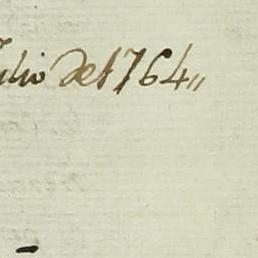 Julio de 1764,,